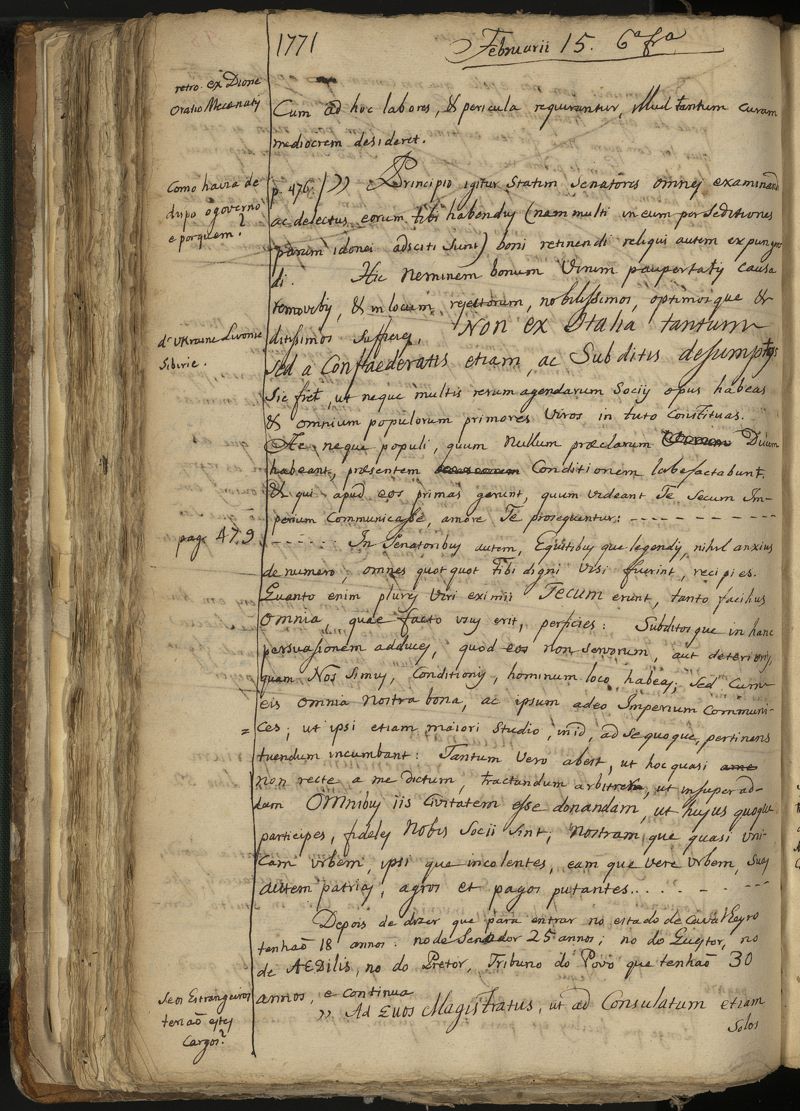 1771
Februarii 15. 6ª frª
retro ex Dione
Oratio Mecænatis
Cum ad hoc labores, & pericula requirantur, illud tantum curam
mediocrem desideret.
Como havia de
dispo o governo
e porquem?
p. 476. )) Principio igitur Statim Senatores omnes examinandi
ac delectus eorum tibi habendus (nam multi in eum per Seditiones
parum idonei adsciti sunt) boni retinendi reliqui autem expungen
di. Hic Neminem bonum Virum paupertatis causa
removebis, & in locum rejectorum, nobilissimos, optimosque &
ditissimos sufficies. Non ex Italia tantum
d'Ukraine Livonie
Siberie.
sed a Confæderatis etiam, ac Subditis desumptos
Sic fiet, ut neque multis rerum agendarum Sociis opus habeas
& omnium populorum primores Viros in tuto Constituas.
Ac neque populi, quum Nullum præclarum Ducem
habeant, præsentem Conditionem labefactabunt.
& qui apud eos primas gerunt, quum videant Te Secum Im-
perium Communicasse, amore Te prosequentur: - - - - - - - -
page 479
- - - - - - In Senatoribus autem, Equitibus que legendis, nihil anxius
de numero, omnes quot quot tibi digni visi fuerint, recipies.
Quanto enim plures Viri eximii TECUM erunt, tanto facilius
omnia, quae facto usus erit, perficies: Subditosque in hanc
persuasionem adduces, quod eos non Servorum, aut deterioris,
quam Nos Simus, Conditionis, hominum loco habeas; sed Cum
eis omnia nostra bona, ac ipsum adeo Imperium Communi-
= ces; ut ipsi etiam maiori Studio, in id, ad se quoque, pertinens
tuendum incumbant: Tantum Vero abest, ut hoc quasi
non recte a me dictum, tractandum arbitrer, ut insuper ad-
dam OMnibus iis Civitatem esse donandam, ut hujus quoque
participes, fideles Nobis Socii Sint; Nostram que quasi Uni-
cam Urbem, ipsi que incolentes, eam que vere Urbem, Suas
autem patrias, agros et pagos putantes. . . . - . - - -
Depois de dizer que para entrar no estado de Cavalleyro
tenhaõ 18 annos. no de Senador 25 annos; no do Questor, no
de AEDilis, no do Pretor, Tribuno do Povo que tenhaõ 30
annos, e continua
Se os Estrangeiros
teriaõ estes
Cargos?
)) Ad Quos Magistratus, ut ad Consulatum etiam
Solos